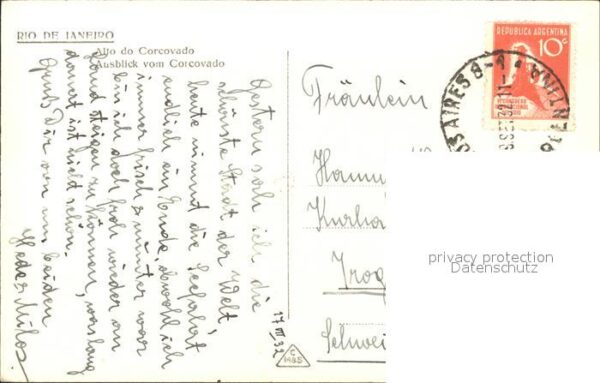 RIO DE JANEIRO
Alto do Corcovado
Ausblick vom Corcovado
Gestern sah ich die
schönste Stadt der Welt
heute nimmt die Seefahrt
endlich ein Ende, obwohl ich
immer frisch & munter war
bin ich doch froh wieder an
Land steigen zu können, was lang
dauert ist nicht schön.
Gruss Dir von uns beiden
Heda & Milos
17 III 32
C
1485
Fräulein
Hann
Kurha
Trog
Schwei
REPUBLICA ARGENTINA
10 c
AIRES 8-1
privacy protection
Datenschutz